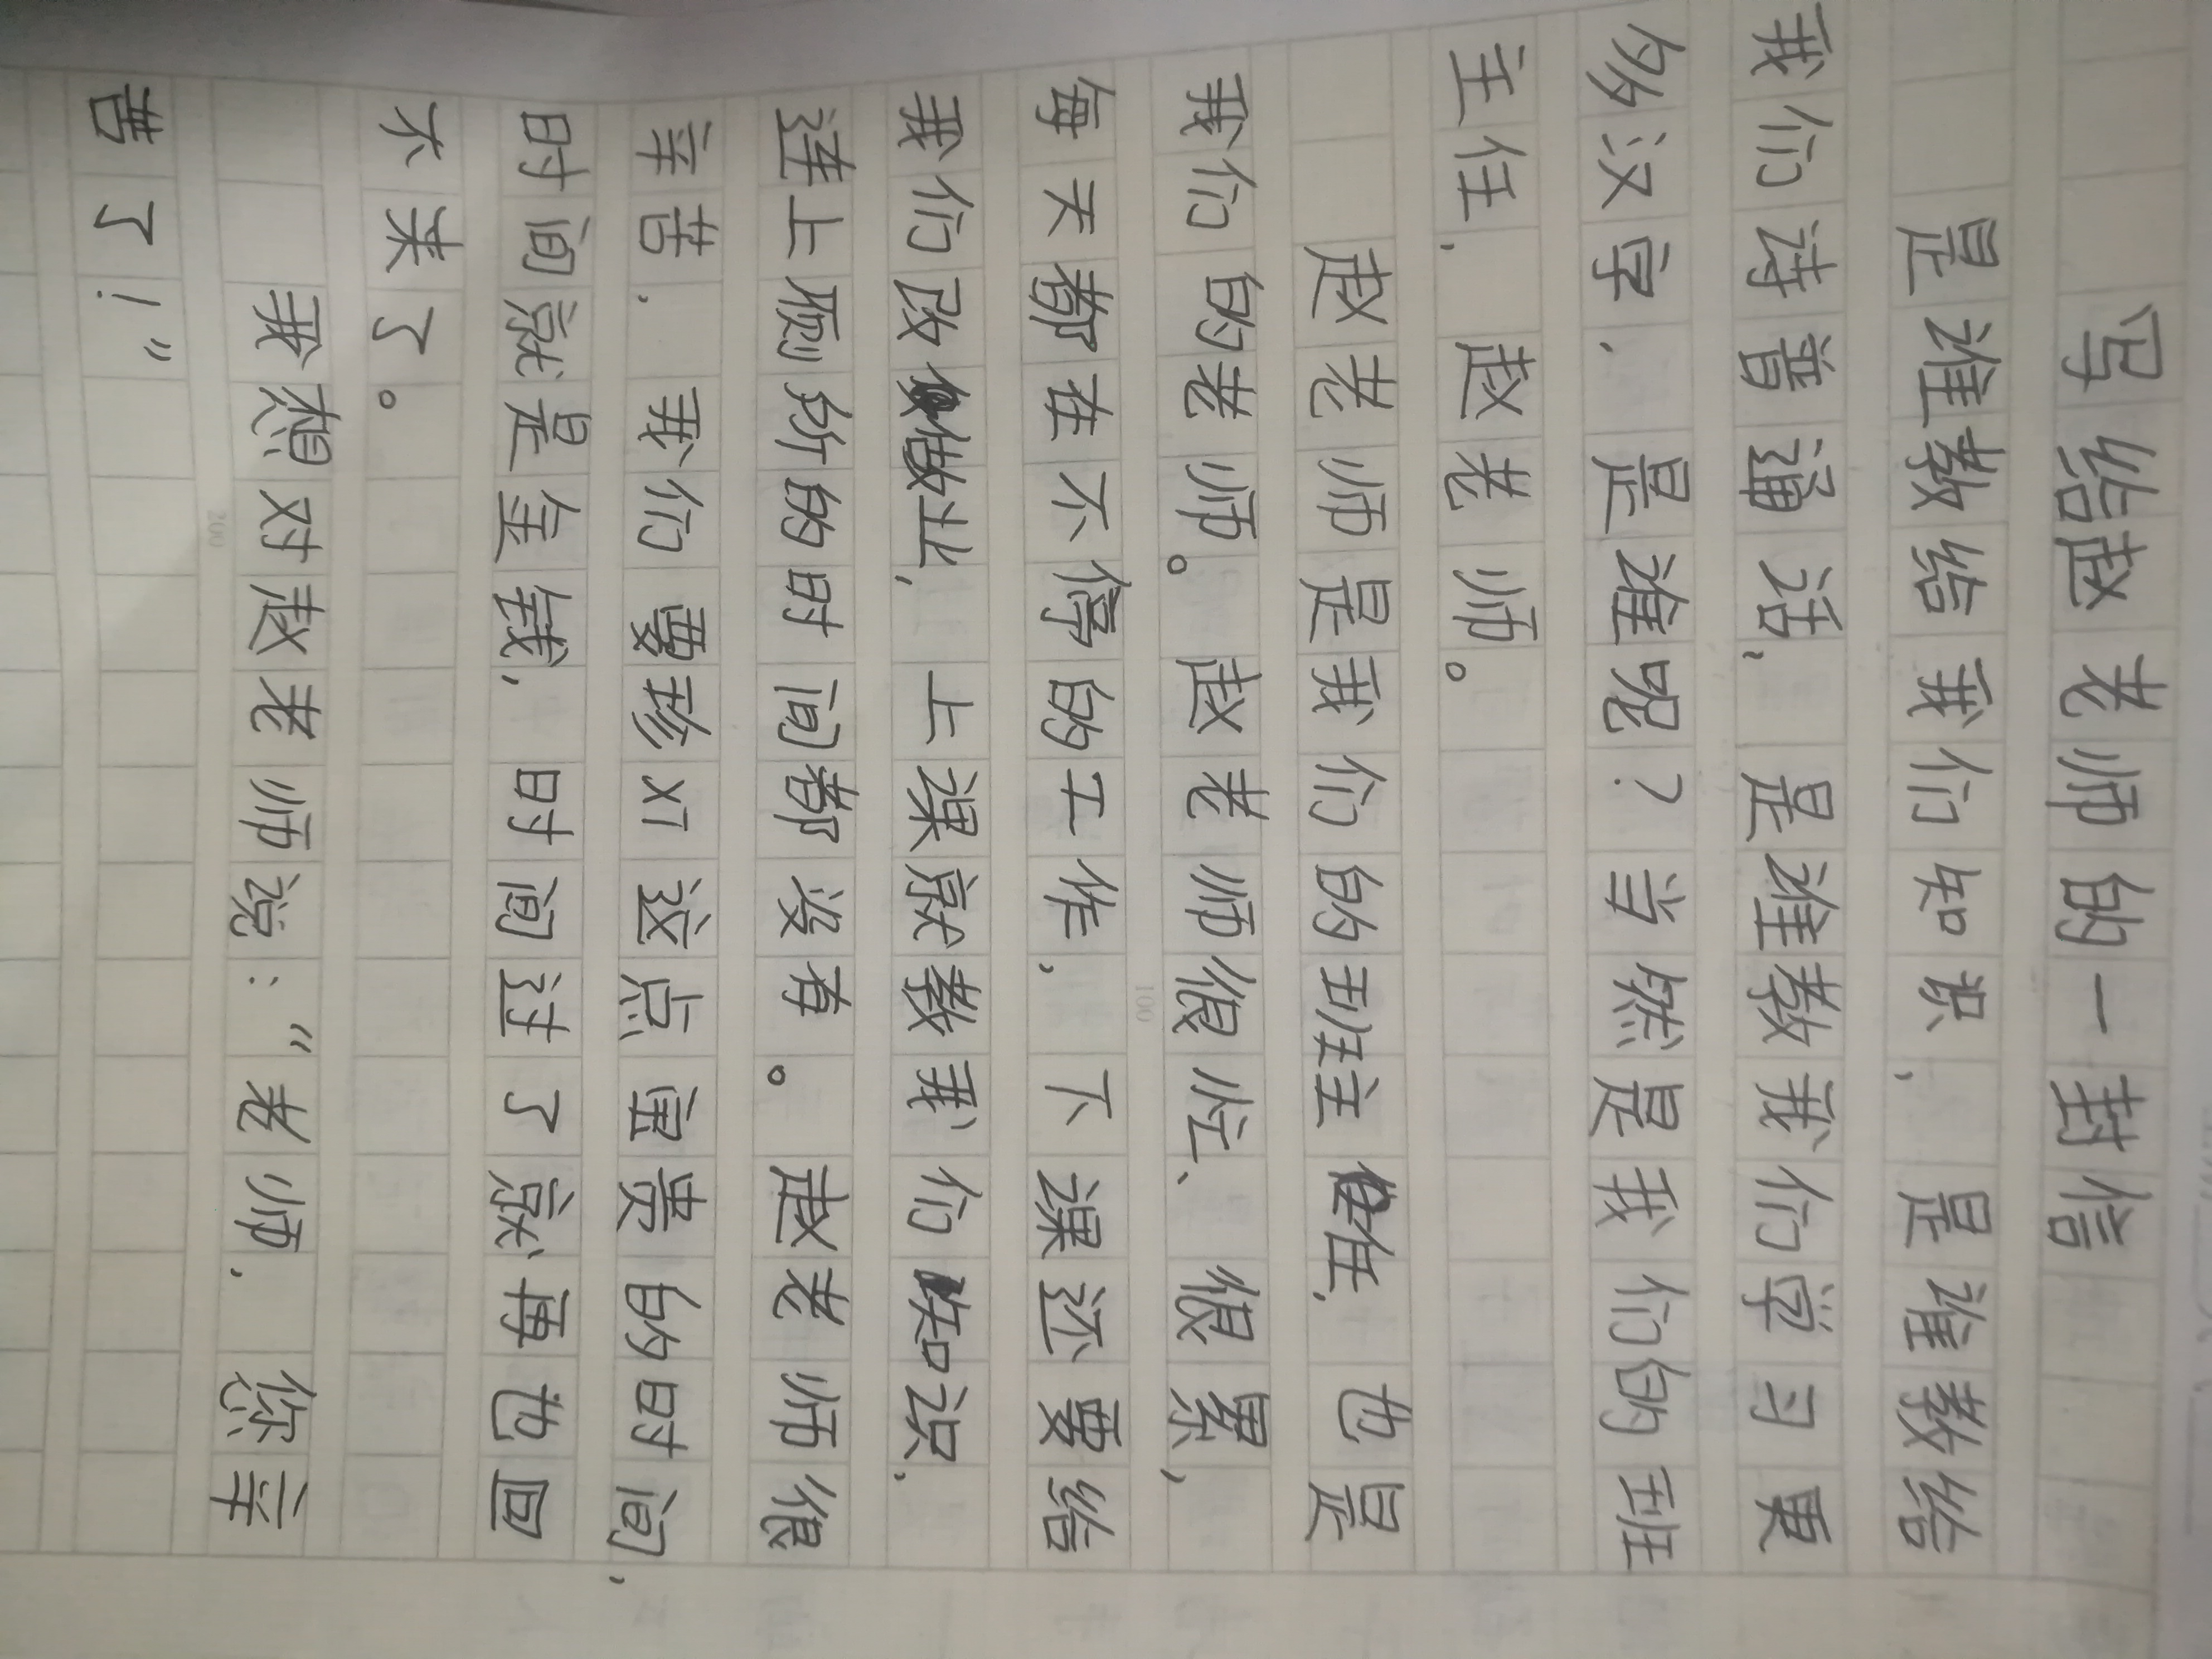 写给赵老师的一封信
是谁教给我们知识，是谁教给
我们诗普通话，是谁教我们学习更
多汉字，是谁呢？当然是我们的班
主任，赵老师。
赵老师是我们的班主任，也是
我们的老师。赵老师很忙、很累，
100
每天都在不停的工作，下课还要给
我们改做业，上课就教我们知识，
连上厕所的时间都没有。赵老师很
辛苦，我们要珍XI这点宝贵的时间，
时间就是金钱，时间过了就再也回
不来了。
我想对赵老师说：“老师，您辛
200
苦了！”